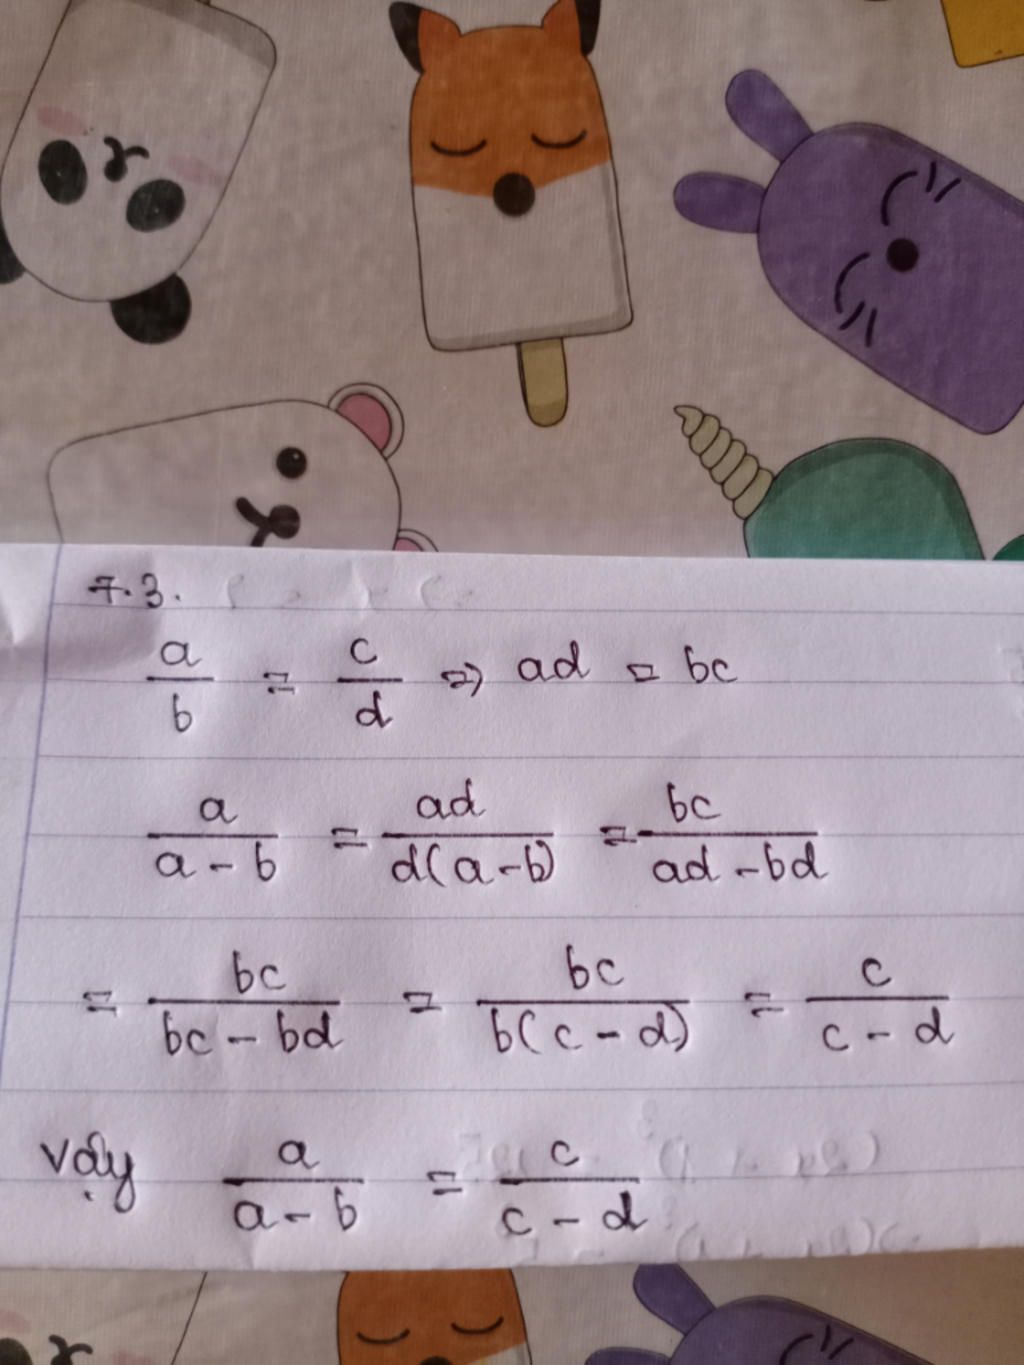 7.3.
a/b = c/d => ad = bc
a/(a - b) = ad/(d(a-b)) = bc/(ad - bd)
= bc/(bc - bd) = bc/(b(c - d)) = c/(c - d)
Vậy a/(a - b) = c/(c - d)